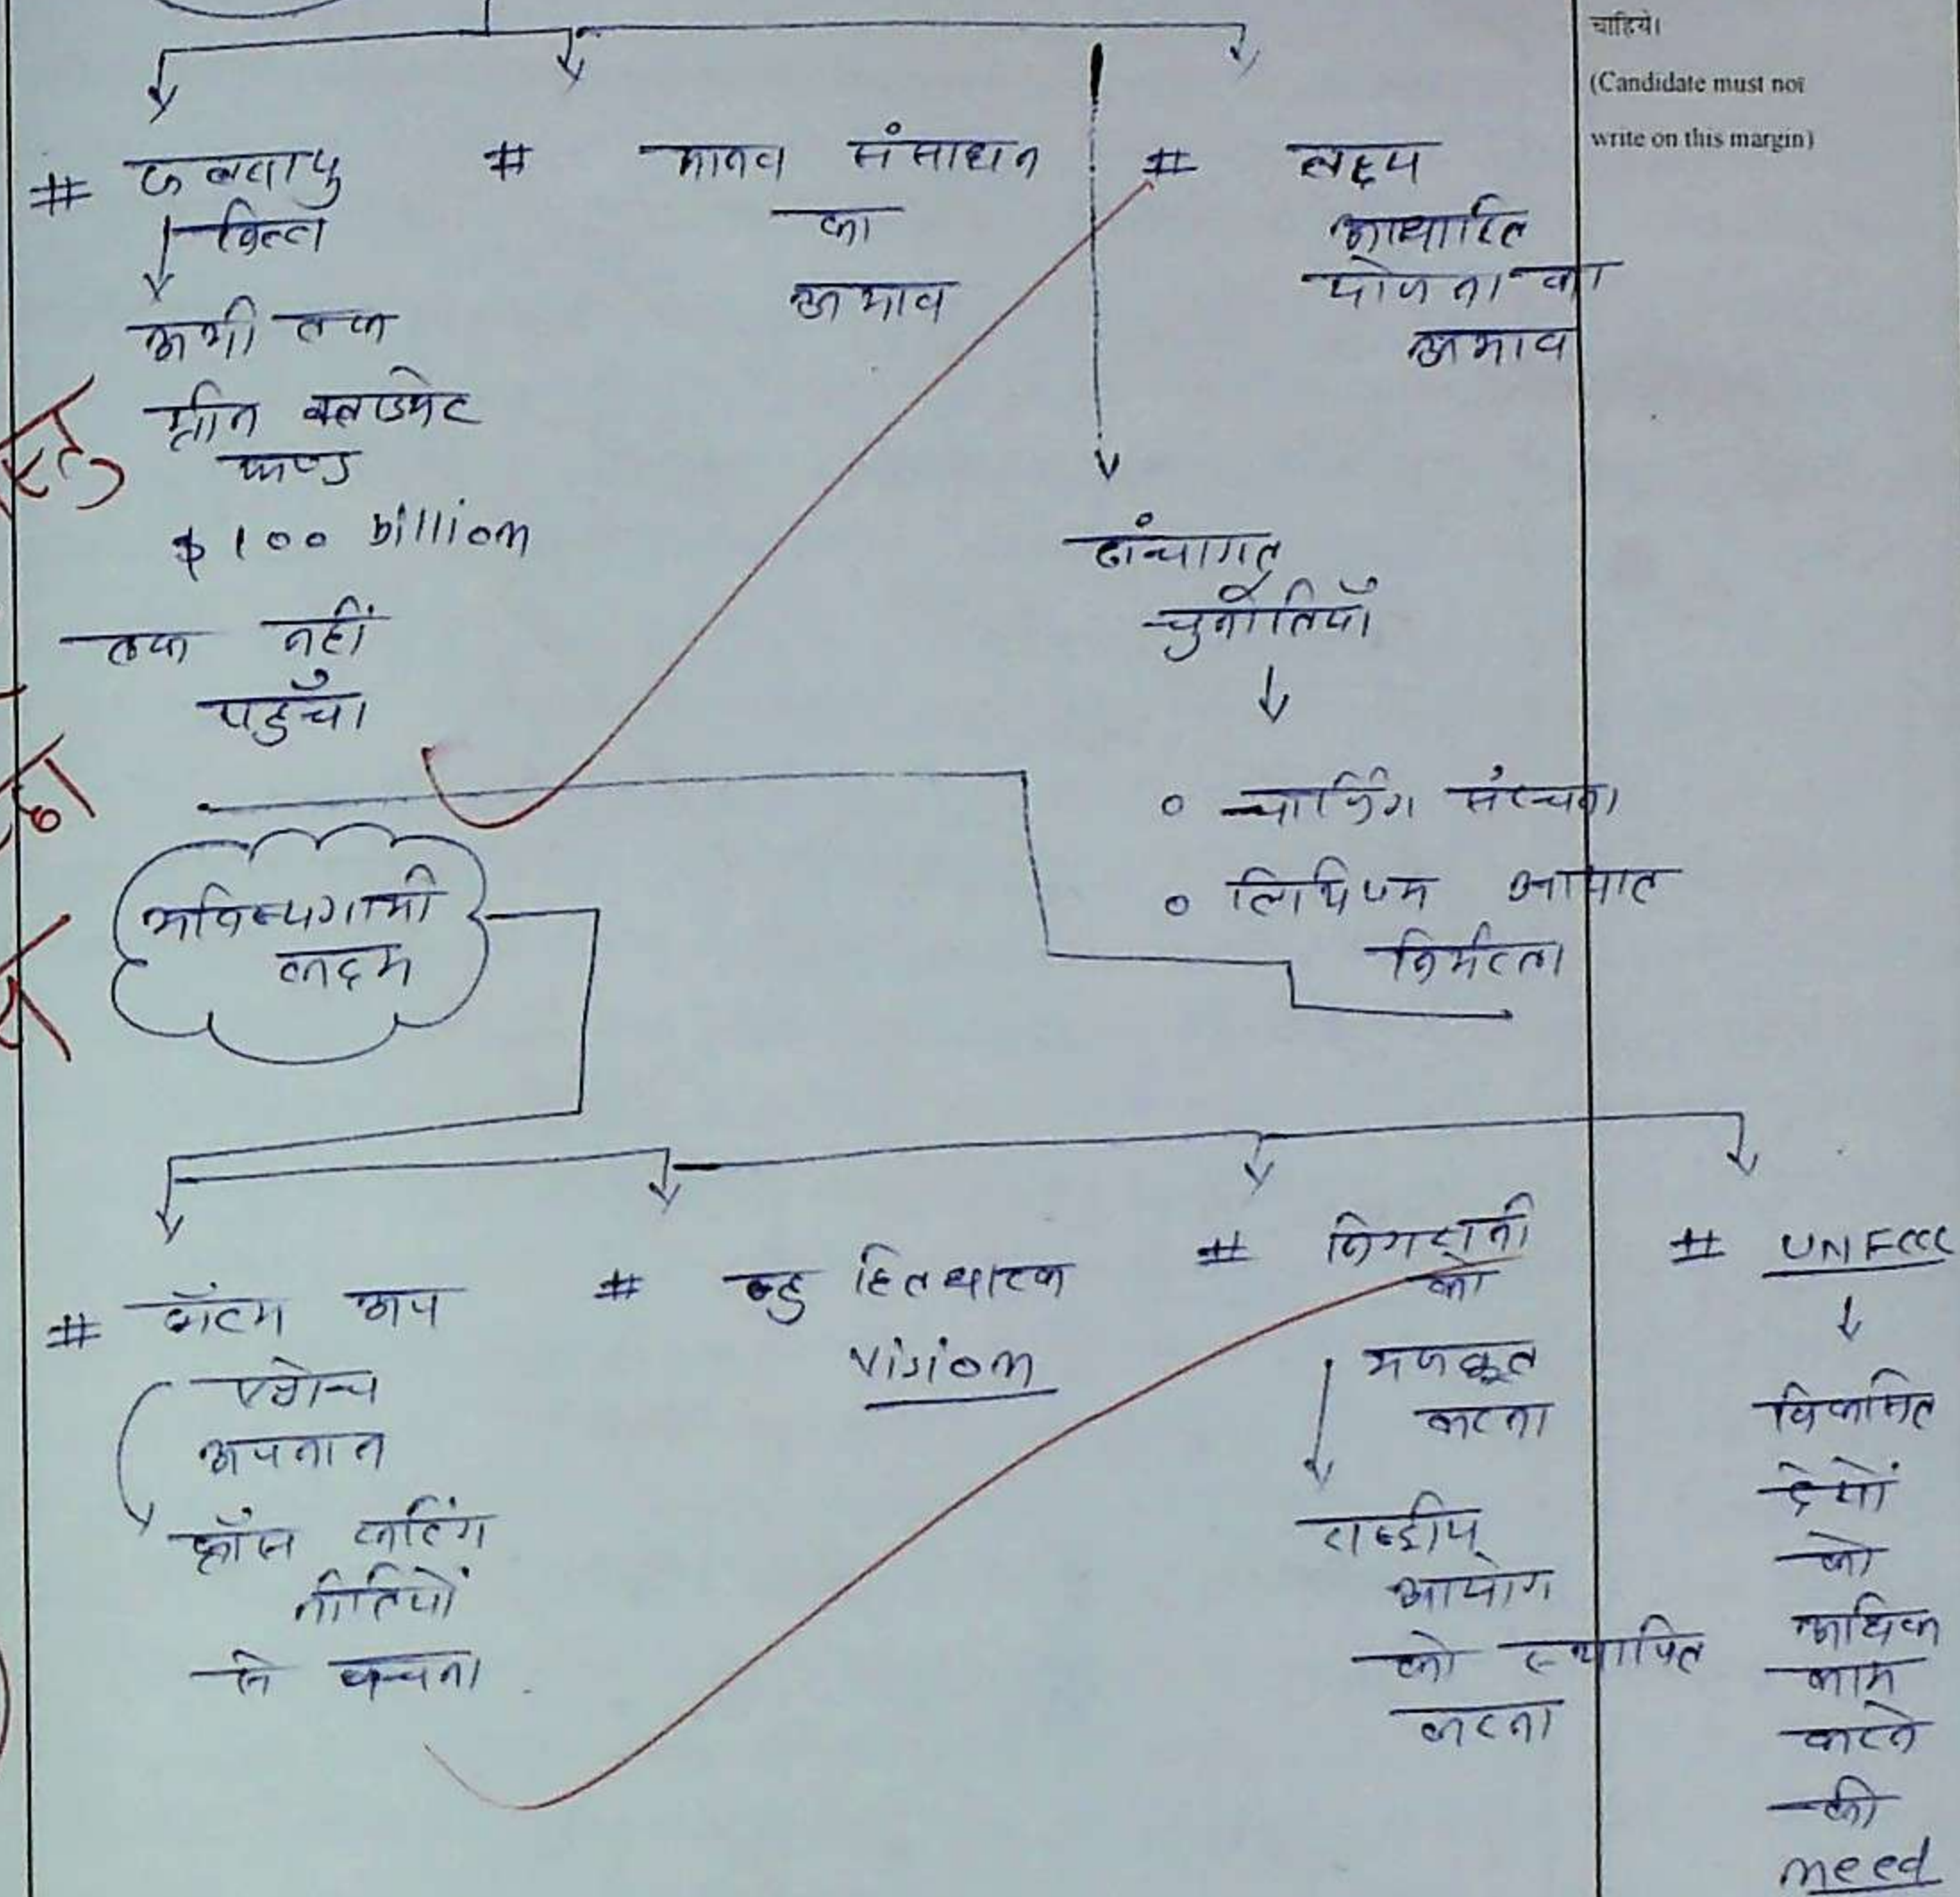 चाहिये।
(Candidate must not
write on this margin)
# जलवायु
वित्त
अभी तक
ग्रीन क्लाइमेट
फण्ड
$ 100 billion
तक नहीं
पहुँचा
# मानव संसाधन
का
अभाव
# लक्ष्य
आधारित
योजना का
अभाव
ढांचागत
चुनौतियाँ
० चार्जिंग संरचना
० लिथियम आयात
निर्भरता
भविष्यगामी
कदम
# बॉटम अप
एप्रोच
अपनान
क्रॉस कटिंग
नीतियों
से बचना
# बहु हितधारक
vision
# निगरानी
को
मजबूत
करना
राष्ट्रीय
आयोग
को स्थापित
करना
# UNFCCC
विकसित
देशों
को
अधिक
काम
करने
की
need